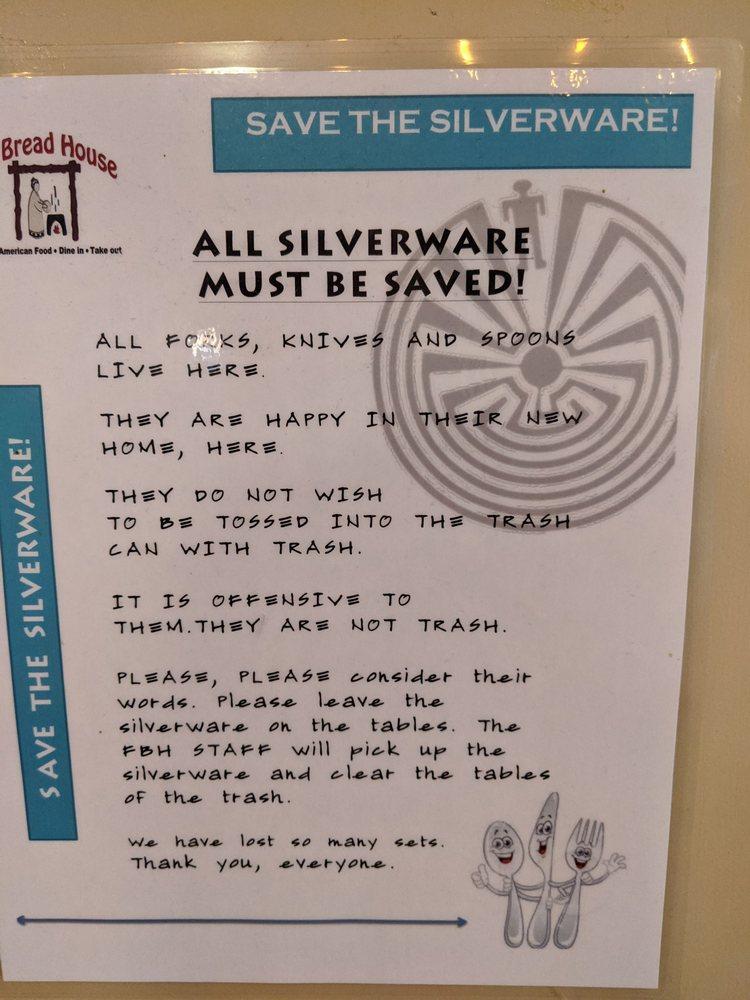 SAVE THE SILVERWARE!
Bread House
American Food • Dine in • Take out
ALL SILVERWARE
MUST BE SAVED!
ALL FORKS, KNIVES AND SPOONS
LIVE HERE.
THEY ARE HAPPY IN THEIR NEW
HOME, HERE.
THEY DO NOT WISH
TO BE TOSSED INTO THE TRASH
CAN WITH TRASH.
IT IS OFFENSIVE TO
THEM.THEY ARE NOT TRASH.
PLEASE, PLEASE consider their
words. Please leave the
silverware on the tables. The
FBH STAFF will pick up the
silverware and clear the tables
of the trash.
We have lost so many sets.
Thank you, everyone.
SAVE THE SILVERWARE!